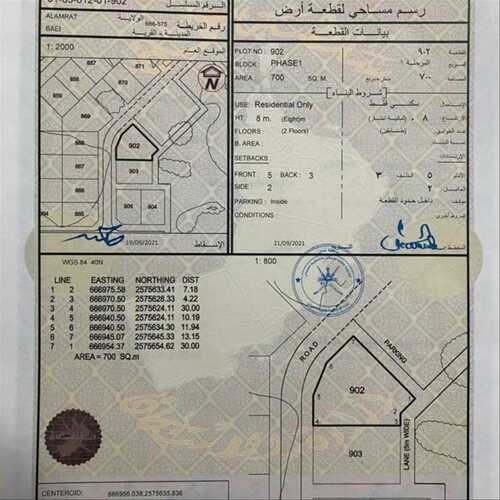 01-05-012-01-902
ALAMRAT
BAEI
666-575
الرقم المساحي
الولاية
رقم الخريطة
المدينة \ القرية
رسم مساحي لقطعة أرض
بيانات القطعة
1: 2000
الموقع العام
PLOT NO: 902 ٩٠٢ القطعة
BLOCK: PHASE1 المرحلة ١ المربع
AREA: 700 SQ. M ٧٠٠ متر مربع المساحة
شروط البناء
USE: Residential Only سكني فقط الإستعمال
HT: 8 m. (Eight)m ٨ م. (ثمانية أمتار) الإرتفاع
FLOORS (2 Floors) (طابقين) عدد الطوابق
B. AREA: نسبة البناء
SETBACKS الإرتدادات
FRONT: 5 BACK: 3 ٣ الخلف ٥ الأمام
SIDE: 2 ٢ الجانبين
PARKING: Inside داخل حدود القطعة المواقف
CONDITIONS شروط أخرى
871
670
669
902
903
19/09/2021
الإسقاط
21/09/2021
المخطط
WGS 84 40N
LINE EASTING NORTHING DIST
1 2 666975.58 2575633.41 7.18
2 3 666970.50 2575628.33 4.22
3 4 666970.50 2575624.11 30.00
4 5 666940.50 2575624.11 10.19
5 6 666940.50 2575634.30 11.94
6 7 666945.07 2575645.33 13.15
7 1 666954.37 2575654.62 30.00
AREA = 700 SQ.m
1: 800
ROAD
PARKING
902
LANE (5m WIDE)
903
CENTEROID: 666956.038,2575635.836